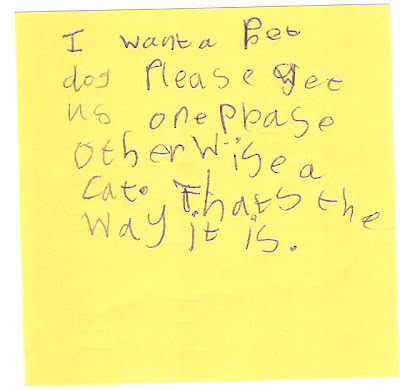 I want a Pet
dog Please get
us one Please
otherwise a
cat. Thats the
way it is.